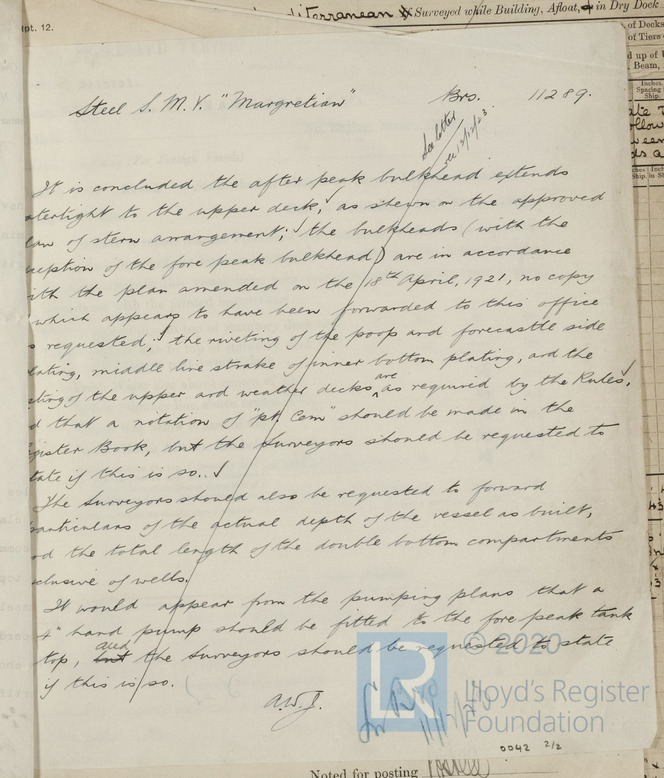 pt. 12.
diterranean Surveyed while Building, Afloat, in Dry Dock
of Decks
of Tiers
d up of
Beam,
Steel S.M.V. "Margretian" Brs. 11289.
See letter
12/12/23
It is concluded the after peak bulkhead extends
atertight to the upper deck, as shewn on the approved
lan of stern arrangement; the bulkheads (with the
ception of the fore peak bulkhead) are in accordance
ith the plan amended on the 18th April, 1921, no copy
which appears to have been forwarded to this office
s requested; the riveting of the poop and forecastle side
lating, middle line strake of inner bottom plating, and the
eting of the upper and weather decks, are as required by the Rules,
d that a notation of "pt. Cem" should be made in the
gister Book, but the Surveyors should be requested to
tate if this is so.
The Surveyors should also be requested to forward
particulars of the actual depth of the vessel as built,
nd the total length of the double bottom compartments
clusive of wells.
It would appear from the pumping plans that a
4" hand pump should be fitted to the fore peak tank
top, but and the Surveyors should be requested to state
if this is so.
A.W.J.
LR © 2020
Lloyd's Register
Foundation
0042 2/2
Noted for posting